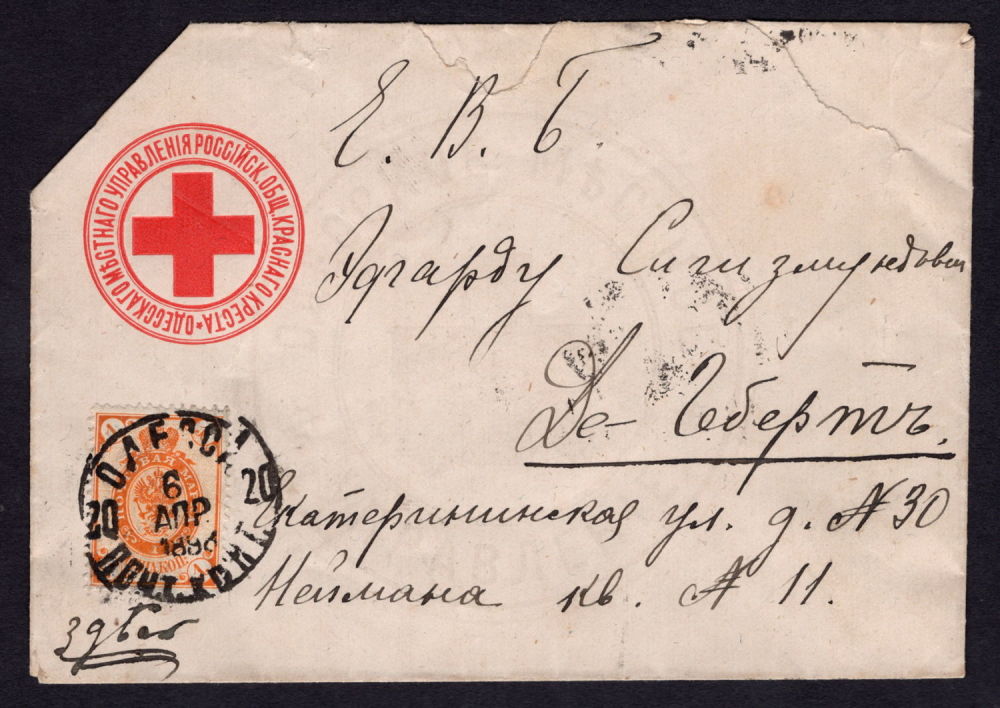 ОДЕССКАГО МѢСТНАГО УПРАВЛЕНІЯ РОССІЙСК. ОБЩ. КРАСНАГО КРЕСТА
Е. В. Б.
Эдгарду Сигизмундовичу
Де-Геберть.
Екатерининская ул. д. № 30
Неймана кв. № 11.
здѣсь
ОДЕССА
6
АПР
20
20
ПОЧТ.
1
1